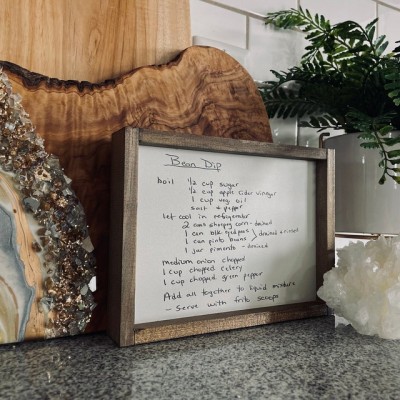 Bean Dip
boil 1/2 cup sugar
1/2 cup apple cider vinegar
1 cup veg oil
salt & pepper
let cool in refrigerator
2 cans shoepeg corn - drained
1 can blk eyed peas } drained & rinsed
1 can pinto beans
1 jar pimento - drained
medium onion chopped
1 cup chopped celery
1 cup chopped green pepper
Add all together to liquid mixture
- Serve with frito scoops